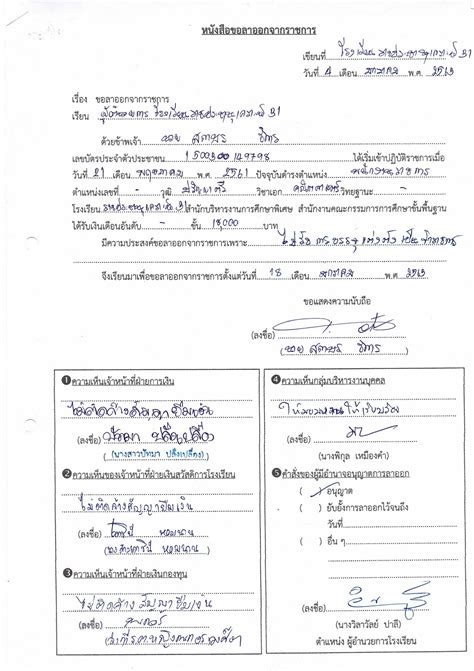 หนังสือขอลาออกจากราชการ
เขียนที่ โรงเรียนราชประชานุเคราะห์ 31
วันที่ 4 เดือน พ.ศ. 2563
เรื่อง ขอลาออกจากราชการ
เรียน ผู้อำนวยการ โรงเรียนราชประชานุเคราะห์ 31
ด้วยข้าพเจ้า นาย
เลขบัตรประจำตัวประชาชน ได้เริ่มเข้าปฏิบัติราชการเมื่อ
วันที่ 21 เดือน พฤษภาคม พ.ศ. 2561 ปัจจุบันดำรงตำแหน่ง พนักงานราชการ
ตำแหน่งเลขที่ - วุฒิ ปริญญาตรี วิชาเอก คณิตศาสตร์ วิทยฐานะ -
โรงเรียน ราชประชานุเคราะห์ 31 สำนักบริหารงานการศึกษาพิเศษ สำนักงานคณะกรรมการการศึกษาขั้นพื้นฐาน
ได้รับเงินเดือนอันดับ - ขั้น 18,000 บาท
มีความประสงค์ขอลาออกจากราชการเพราะ ไปรับการบรรจุแต่งตั้งเป็นข้าราชการ
จึงเรียนมาเพื่อขอลาออกจากราชการตั้งแต่วันที่ 18 เดือน พ.ศ. 2563
ขอแสดงความนับถือ
(ลงชื่อ)
(นาย )
❶ ความเห็นเจ้าหน้าที่ฝ่ายการเงิน
ไม่ติดค้างสัญญายืมเงิน
(ลงชื่อ)
(นางสาวปัทมา ปลื้งเปลื่อง)
❷ ความเห็นของเจ้าหน้าที่ฝ่ายเงินสวัสดิการโรงเรียน
ไม่ติดค้างสัญญายืมเงิน
(ลงชื่อ)
❸ ความเห็นเจ้าหน้าที่ฝ่ายเงินกองทุน
ไม่ติดค้าง สัญญายืมเงิน
(ลงชื่อ)
❹ ความเห็นกลุ่มบริหารงานบุคคล
(ลงชื่อ)
(นางพิกุล เหมืองคำ)
❺ คำสั่งของผู้มีอำนาจอนุญาตการลาออก
( / ) อนุญาต
( ) ยับยั้งการลาออกไว้จนถึง
วันที่
( ) อื่น ๆ
(ลงชื่อ)
(นางวิลาวัลย์ ปาลี)
ตำแหน่ง ผู้อำนวยการโรงเรียน